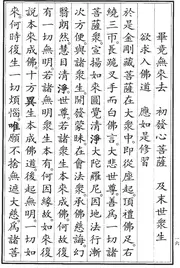 畢竟無來去　初發心菩薩　及末世眾生
欲求入佛道　應如是修習
於是金剛藏菩薩在大眾中即從座起頂禮佛足右
繞三帀長跪叉手而白佛言大悲世尊善為一切諸
菩薩眾宣揚如來圓覺清淨大陀羅尼因地法行漸
次方便與諸眾生開發蒙昧在會法眾承佛慈誨幻
翳朗然慧目清淨世尊若諸眾生本來成佛何故復
有一切無明若諸無明眾生本有何因緣故如來復
說本來成佛十方異生本成佛道後起無明一切如
來何時復生一切煩惱唯願不捨無遮大慈為諸菩